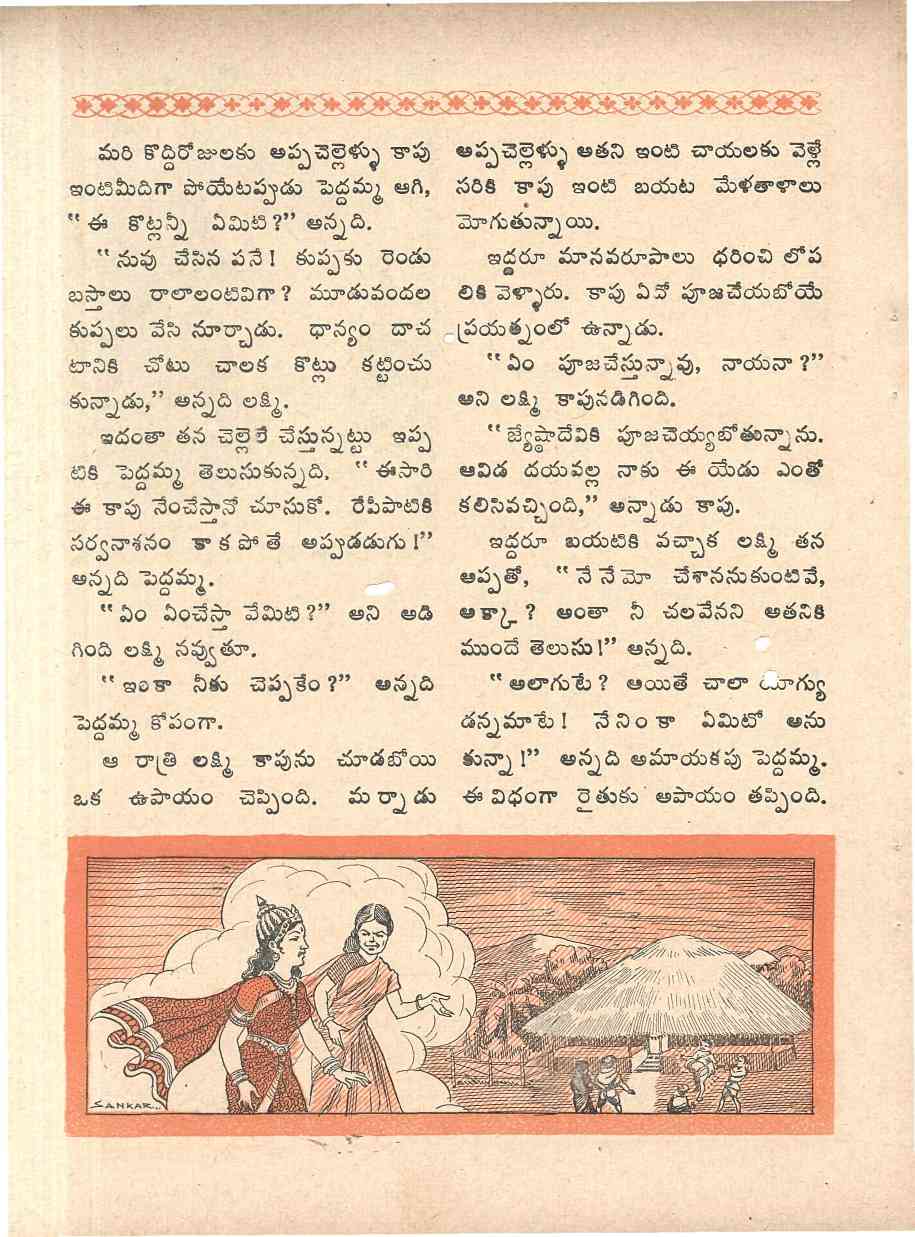 మరి కొద్దిరోజులకు అప్పచెల్లెళ్ళు కాపు
ఇంటిమీదిగా పోయేటప్పుడు పెద్దమ్మ ఆగి,
“ఈ కొట్లన్నీ ఏమిటి?” అన్నది.
“నువు చేసిన పనే! కుప్పకు రెండు
బస్తాలు రాలాలంటివిగా? మూడువందల
కుప్పలు వేసి నూర్చాడు. ధాన్యం దాచ
టానికి చోటు చాలక కొట్లు కట్టించు
కున్నాడు,” అన్నది లక్ష్మి.
ఇదంతా తన చెల్లెలే చేస్తున్నట్టు ఇప్ప
టికి పెద్దమ్మ తెలుసుకున్నది. “ఈసారి
ఈ కాపు నేంచేస్తానో చూసుకో. రేపీపాటికి
సర్వనాశనం కాకపోతే అప్పుడడుగు!”
అన్నది పెద్దమ్మ.
“ఏం ఏంచేస్తా వేమిటి?” అని అడి
గింది లక్ష్మి నవ్వుతూ.
“ఇంకా నీకు చెప్పకేం?” అన్నది
పెద్దమ్మ కోపంగా.
ఆ రాత్రి లక్ష్మి కాపును చూడబోయి
ఒక ఉపాయం చెప్పింది. మర్నాడు
అప్పచెల్లెళ్ళు అతని ఇంటి చాయలకు వెళ్లే
సరికి కాపు ఇంటి బయట మేళతాళాలు
మోగుతున్నాయి.
ఇద్దరూ మానవరూపాలు ధరించి లోప
లికి వెళ్ళారు. కాపు ఏవో పూజచేయబోయే
ప్రయత్నంలో ఉన్నాడు.
“ఏం పూజచేస్తున్నావు, నాయనా?”
అని లక్ష్మి కాపునడిగింది.
“జ్యేష్ఠాదేవికి పూజచెయ్యబోతున్నాను.
ఆవిడ దయవల్ల నాకు ఈ యేడు ఎంతో
కలిసివచ్చింది,” అన్నాడు కాపు.
ఇద్దరూ బయటికి వచ్చాక లక్ష్మి తన
అప్పతో, “నేనేమో చేశాననుకుంటివే,
అక్కా? అంతా నీ చలవేనని అతనికి
ముందే తెలుసు!” అన్నది.
“అలాగుటే? అయితే చాలా యోగ్యు
డన్నమాటే! నేనింకా ఏమిటో అను
కున్నా!” అన్నది అమాయకపు పెద్దమ్మ.
ఈ విధంగా రైతుకు అపాయం తప్పింది.
SANKAR...